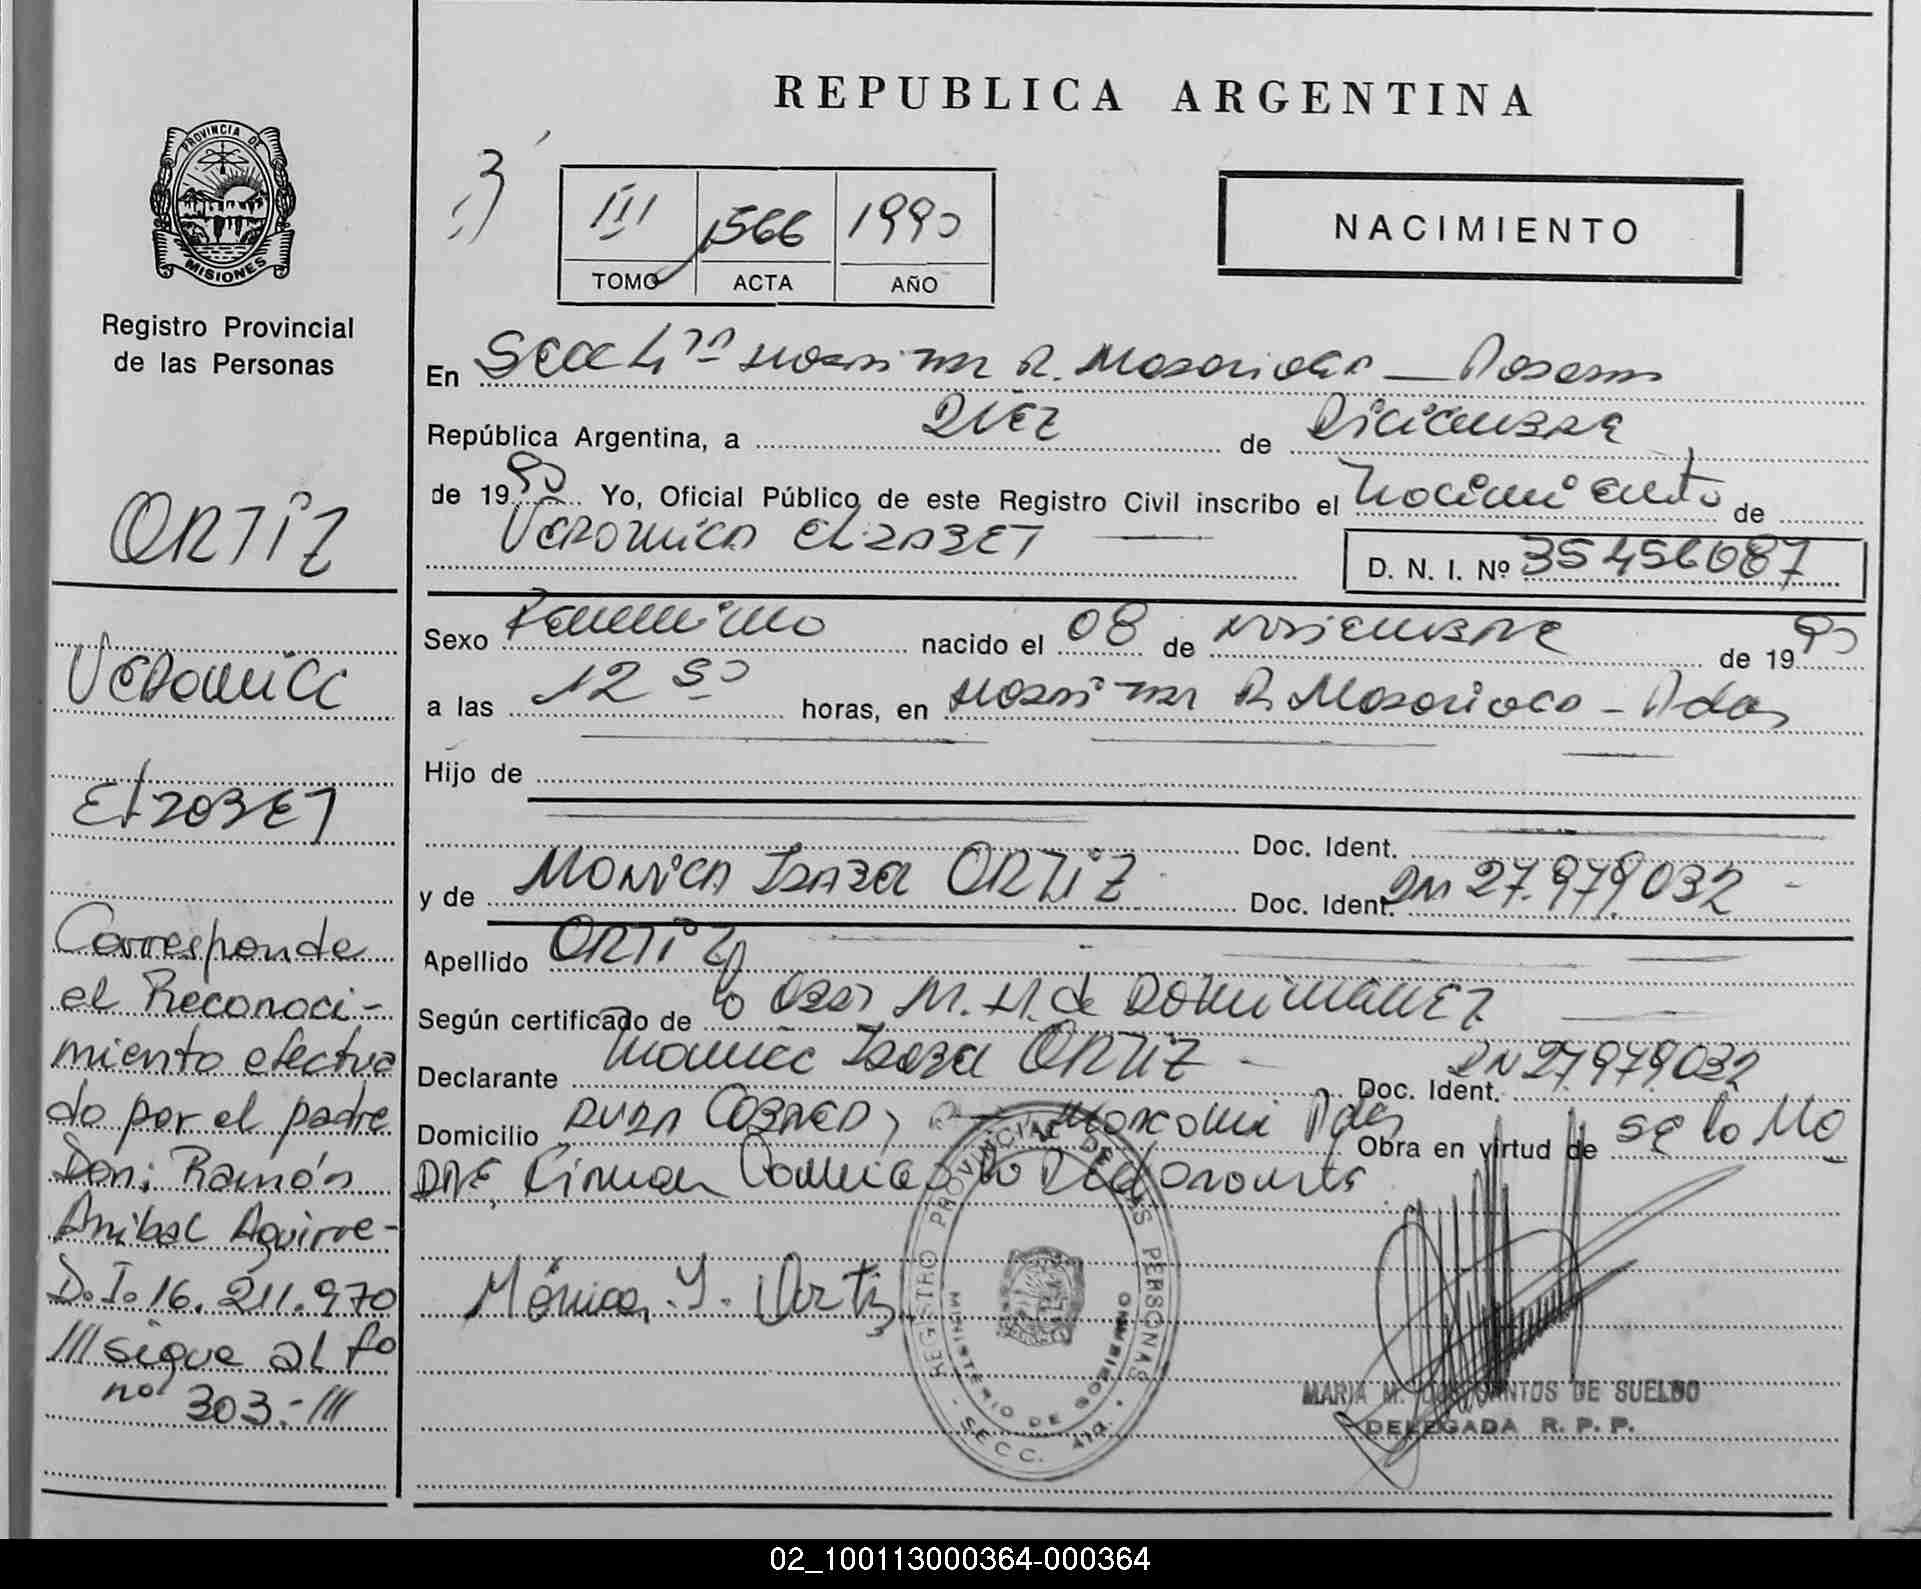 REPUBLICA ARGENTINA
PROVINCIA DE
MISIONES
Registro Provincial
de las Personas
3
III 1566 1990
TOMO ACTA AÑO
NACIMIENTO
En Secc 4ta R. Posadas
República Argentina, a DIEZ de Diciembre
de 1990 Yo, Oficial Público de este Registro Civil inscribo el Nacimiento de
VERONICA ELIZABET D. N. I. Nº 35456087
Sexo Femenino nacido el 08 de NOVIEMBRE de 1990
a las 12 50 horas, en R. Pdas
Hijo de
Doc. Ident.
y de MONICA ISABEL ORTIZ Doc. Ident. DNI 27.979.032 -
Apellido ORTIZ
Según certificado de la Obst M. M. de
Declarante Monica Isabel ORTIZ - Doc. Ident. DNI 27.979.032
Domicilio Pdas Obra en virtud de se la Ma
DRE, Firman la Declarante
Mónica, Y. Ortiz
REGISTRO PROVINCIAL DE LAS PERSONAS
MINISTERIO DE GOBIERNO
- SECC. 4ta. -
MARIA M. DOS SANTOS DE SUELDO
DELEGADA R. P. P.
ORTIZ
VERONICA
ELIZABET
Corresponde
el Reconoci-
miento efectua
do por el padre
Don: Ramón
Anibal Aguirre-
D.I. 16.211.970
/// sigue al fo
nº 303.-///
02_100113000364-000364